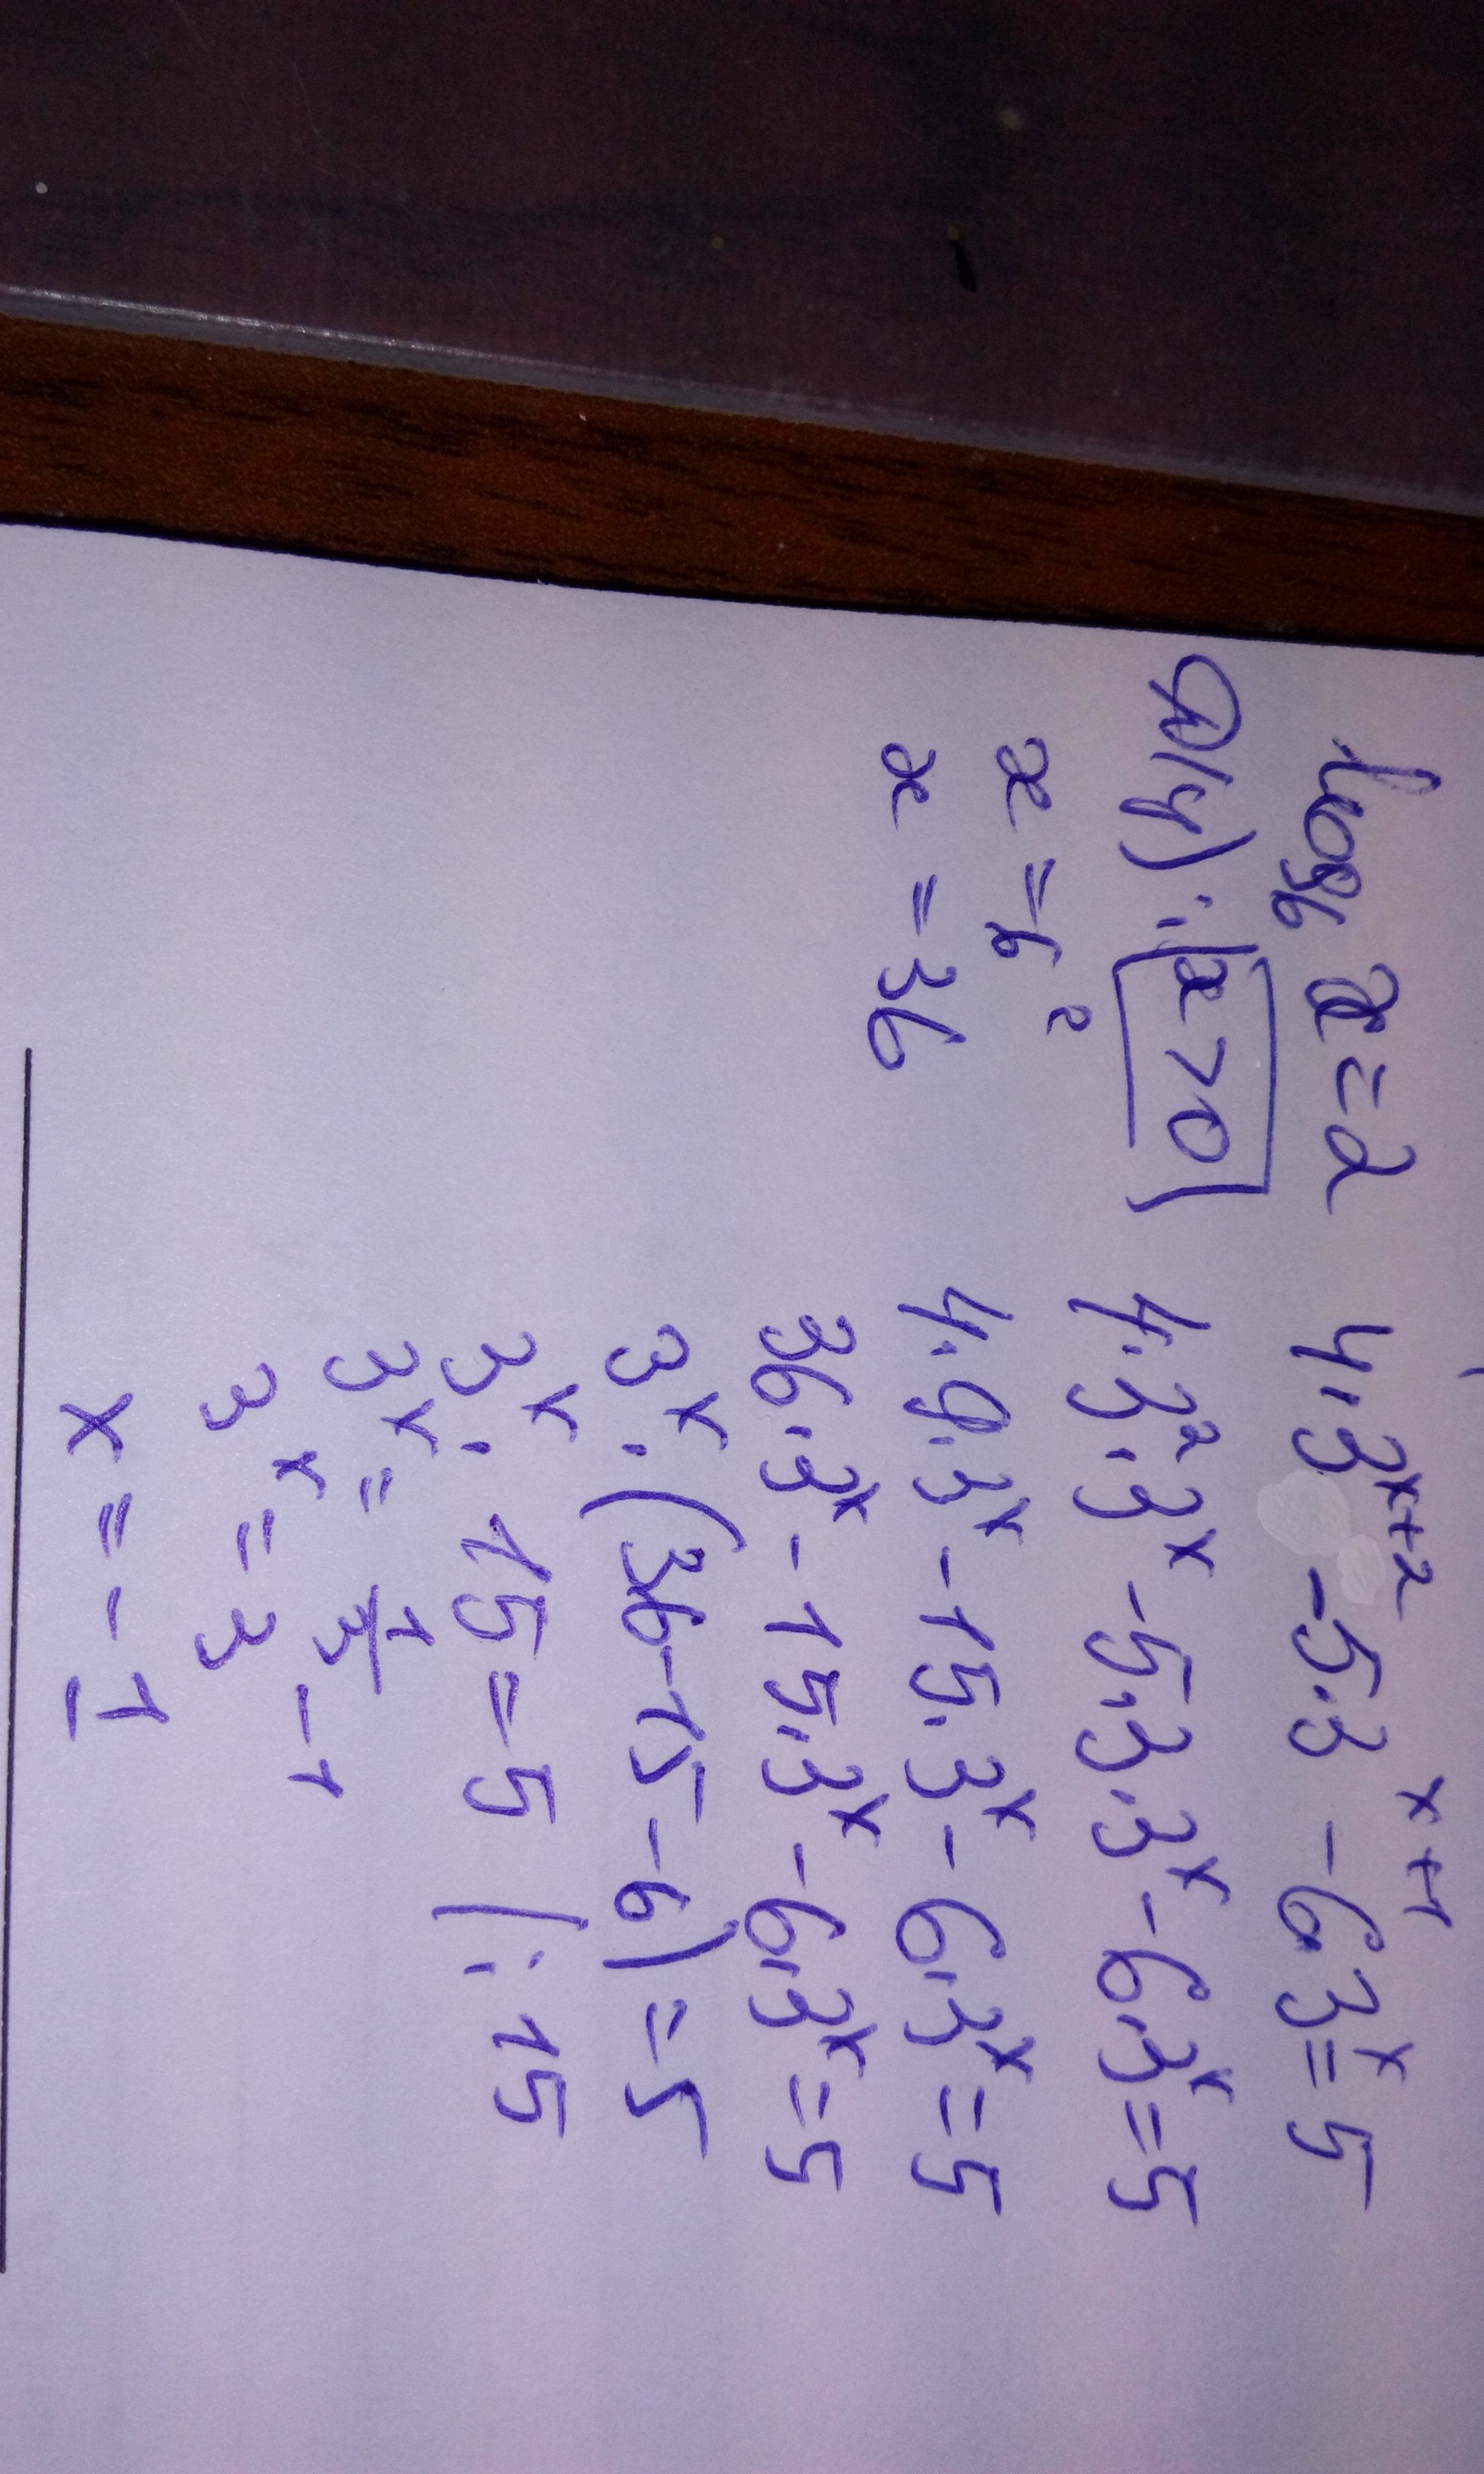 log₆ x = 2
D(y): x > 0
x = 6²
x = 36
4·3ˣ⁺² - 5·3ˣ⁺¹ - 6·3ˣ = 5
4·3²·3ˣ - 5·3·3ˣ - 6·3ˣ = 5
4·9·3ˣ - 15·3ˣ - 6·3ˣ = 5
36·3ˣ - 15·3ˣ - 6·3ˣ = 5
3ˣ·(36 - 15 - 6) = 5
3ˣ·15 = 5 /:15
3ˣ = 1/3
3ˣ = 3⁻¹
x = -1